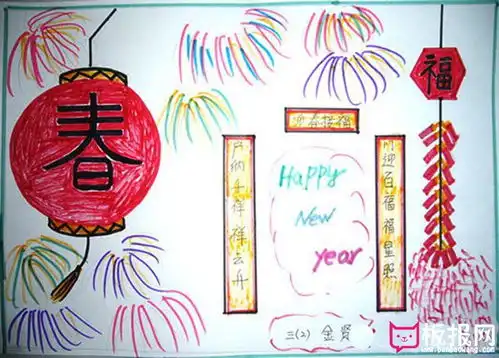 春
福
迎春接福
门迎百福福星照
户纳千祥祥云开
Happy
New
year
三(2) 金贤
板报网
www.banbaowang.com